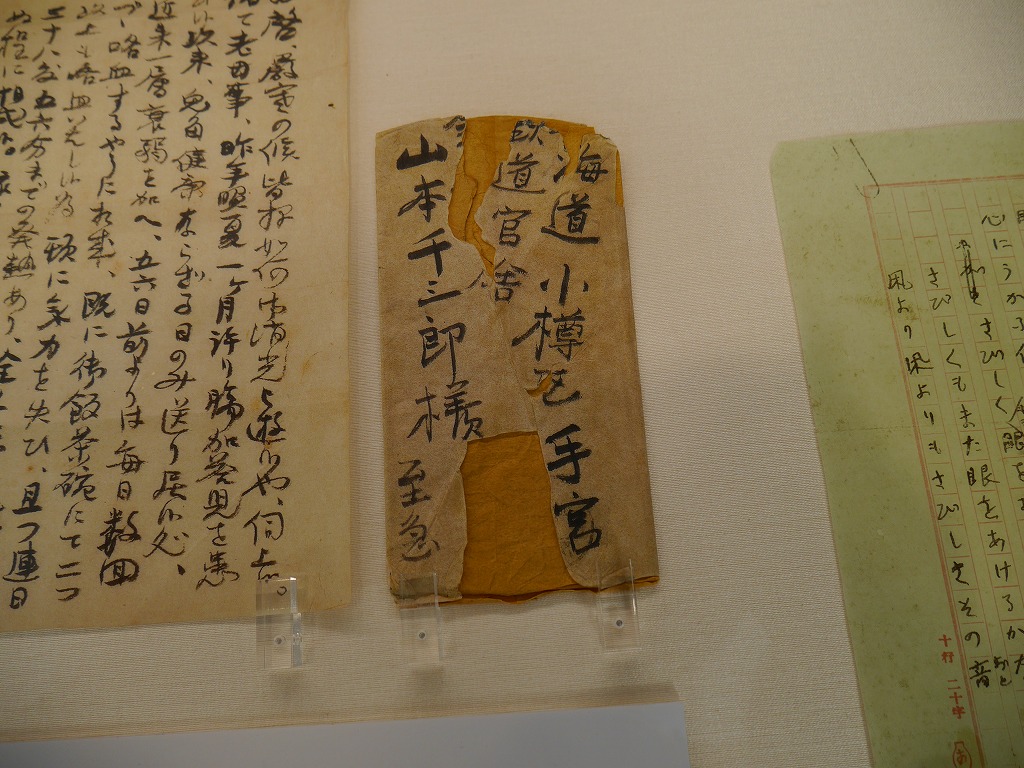 啓、厳寒の候皆様如何御消光被遊候や、伺上候。
て老母事、昨年盛夏一ヶ月許り腸加答児を患
以来、兎角健康ならざる日のみ送り居候処、
近来一層衰弱を加へ、五六日前よりは毎日数回
喀血するやうに相成、既に御飯茶碗にて二つ
以上も喀血いたし候為、頓に気力を失ひ、且つ連日
三十八度五六分までの発熱あり、
ぬ程に相成
海道小樽区手宮
鉄道官舎
山本千三郎様 至急
心にうかぶ
さびしく眼をあ
さびしくもまた眼をあけるかな
凩より凩よりもさびしきその音
おと
十行二十字